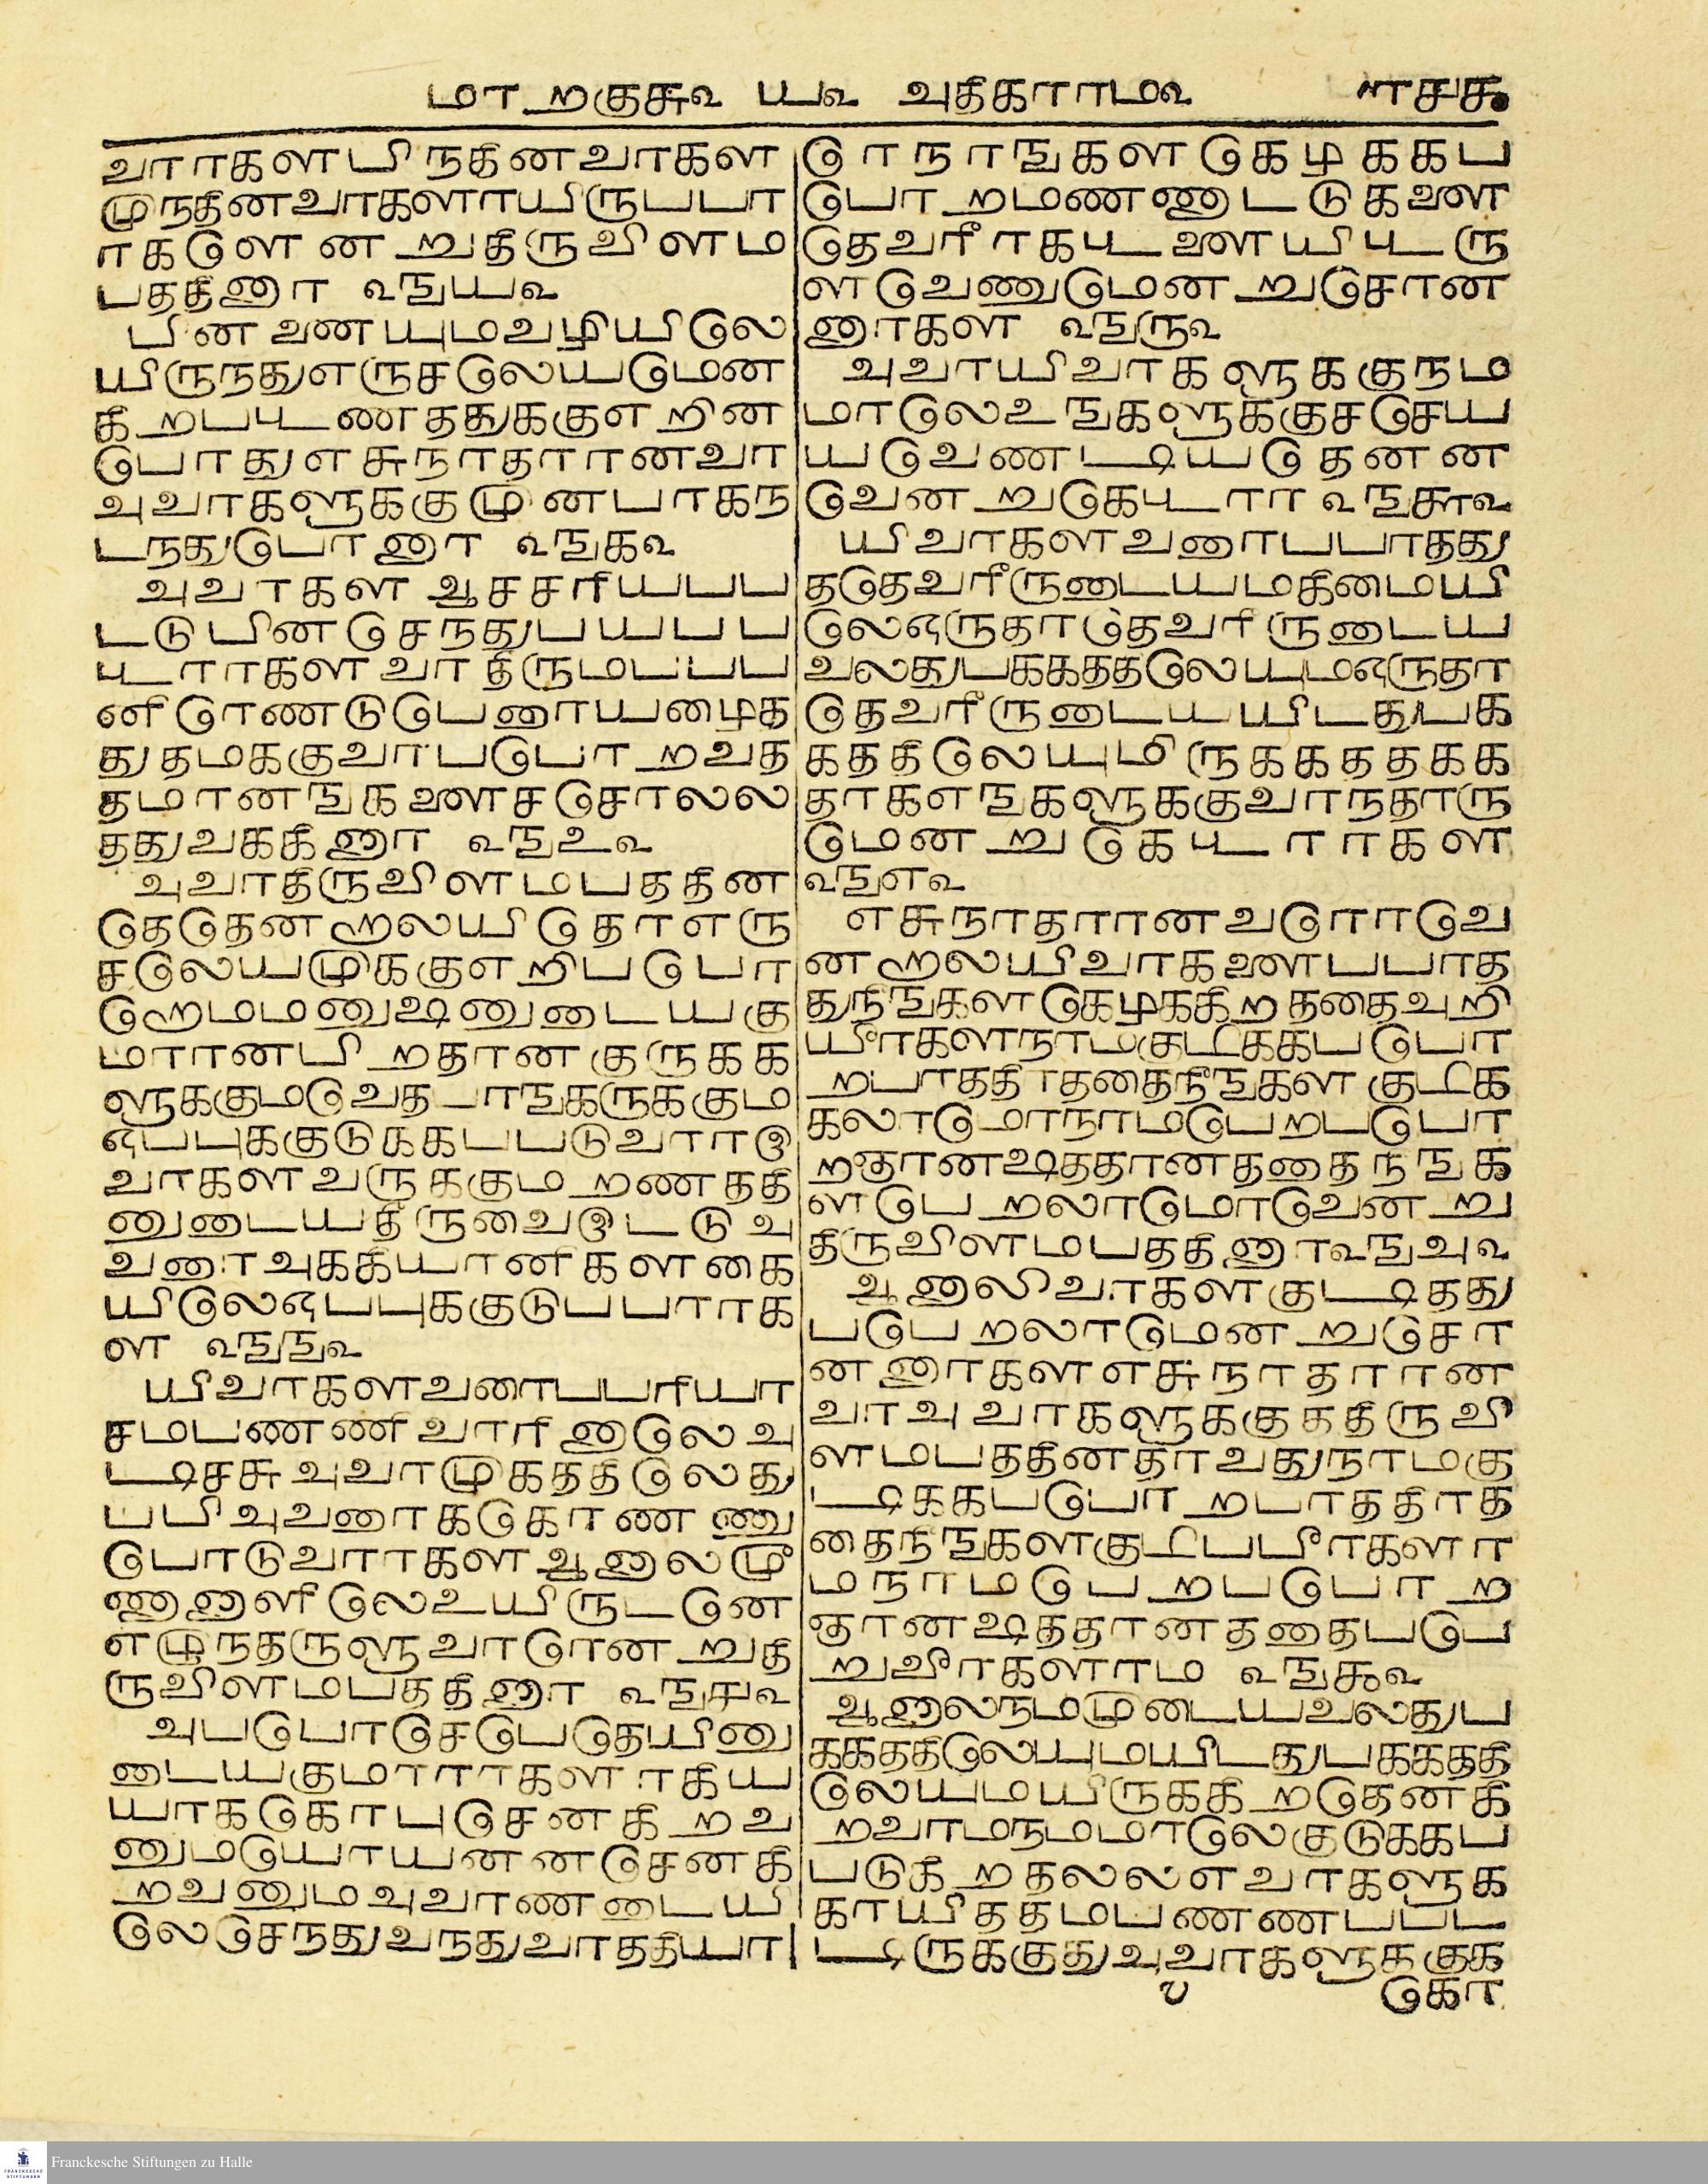 மாறகுசு௨ ய௨ அதிகாரம௨ ௱சக
வாரகளபிநதினவாகள
முநதினவாகளாயிருபபா
ரகளெனறுதிருவிளம
பததினார ௨ஙய௨
பினனையுமவழியிலே
யிருநதுஎருசலேயமென
கிறபடடணததுககுஎறின
பொதுஎசுநாதரானவா
அவாகளுககுமுனபாகந
டநதுபோனார ௨ஙக௨
அவாகள ஆசசரியபப
டடுபினசெநதுபயபப
டடாரகள வாதிருமபபப
னிரெணடுபெரையழைத
துதமககுவாபபோறவத
தமானஙகளைசசொலல
ததுவககினார ௨ங௨௨
அவாதிருவிளமபததின
தேதெனறாலயிதோஎரு
சலேயமுககுஎறிபபோ
றோமமனுஷனுடையகு
மாரனபிறதானகுருகக
ளுககுமவேதபாரஙகருககும
ஒபபுககுடுககபபடுவாரஇ
வாகளவருககுமறணததி
னுடையதிருவைஇடடு அ
வரைஅககியானிகளகை
யிலேஒபபுககுடுபபாரக
ள ௨ஙங௨
யிவாகளவரைபபரியா
சமபணணிவாரினாலேஅ
டிசசுஅவாமுகததிலேது
பபிஅவரைககொணணு
போடுவாரகள ஆனாலமூ
ணுனாளிலேஉயிருடனே
எழுநதருளுவாரெனறுதி
ருவிளமபததினார ௨ஙச௨
அபபோசெபெதேயினு
டையகுமாரரகளாகிய
யாககொபுசெனகிறவ
னுமயோயனனசெனகி
றவனுமஅவாணடையி
லேசெநதுவநதுவாததியா
ரெநாஙகளகெழககப
போறமணணாடடுகளை
தேவரீரகடடளையிடடரு
ளவேணுமெனறுசொன
னாரகள ௨ஙரு௨
அவாயிவாகளுககுநம
மாலேஉஙகளுககுசசெய
யவேணடியதெனன
வெனறுகேடடார ௨ஙசா௨
யிவாகளவரைபபாதது
ததேவரீருடையமகிமையி
லேஒருதாதேவரீருடைய
வலதுபகககததலேயுமஒருதா
தேவரீருடையயிடதுபக
கததிலேயுமிருககததகக
தாகஎஙகளுககுவாநதாரு
மெனறு கேடடாரகள
௨ஙஎ௨
எசுநாதரானவரொவெ
னறாலயிவாகளைபபாத
துநிஙகளகெழககிறததைஅறி
யீரகளநாமகுடிககபபோ
றபாததிரததைநீஙகள குடிக
கலாமோநாமபெறபபோ
றஞானஷததானததைநிஙக
ளபெறலாமோவெனறு
திருவிளமபததினார௨ஙஅ௨
ஆனாலிவாகளகுடிதது
பபெறலாமெனறுசொ
னனாரகளஎசுநாதரான
வாஅவாகளுககுகதிருவி
ளமபததினதாவதுநாமகு
டிககபபோறபாததிரத
தைநிஙகளகுடிபபீரகளா
மநாமபெறபபோற
ஞானஷததானததைபபெ
றுவீரகளாம ௨ஙகூ௨
ஆனாலநமமுடையவலதுப
ககததிலேயுமயிடதுபகககததி
லேயுமயிருககிறதெனகி
றவாமநமமாலேகுடுககப
படுகிறதலலஎவாகளுக
காயிததமபணணபபட
டிருககுதுஅவாகளுககுக
கொ